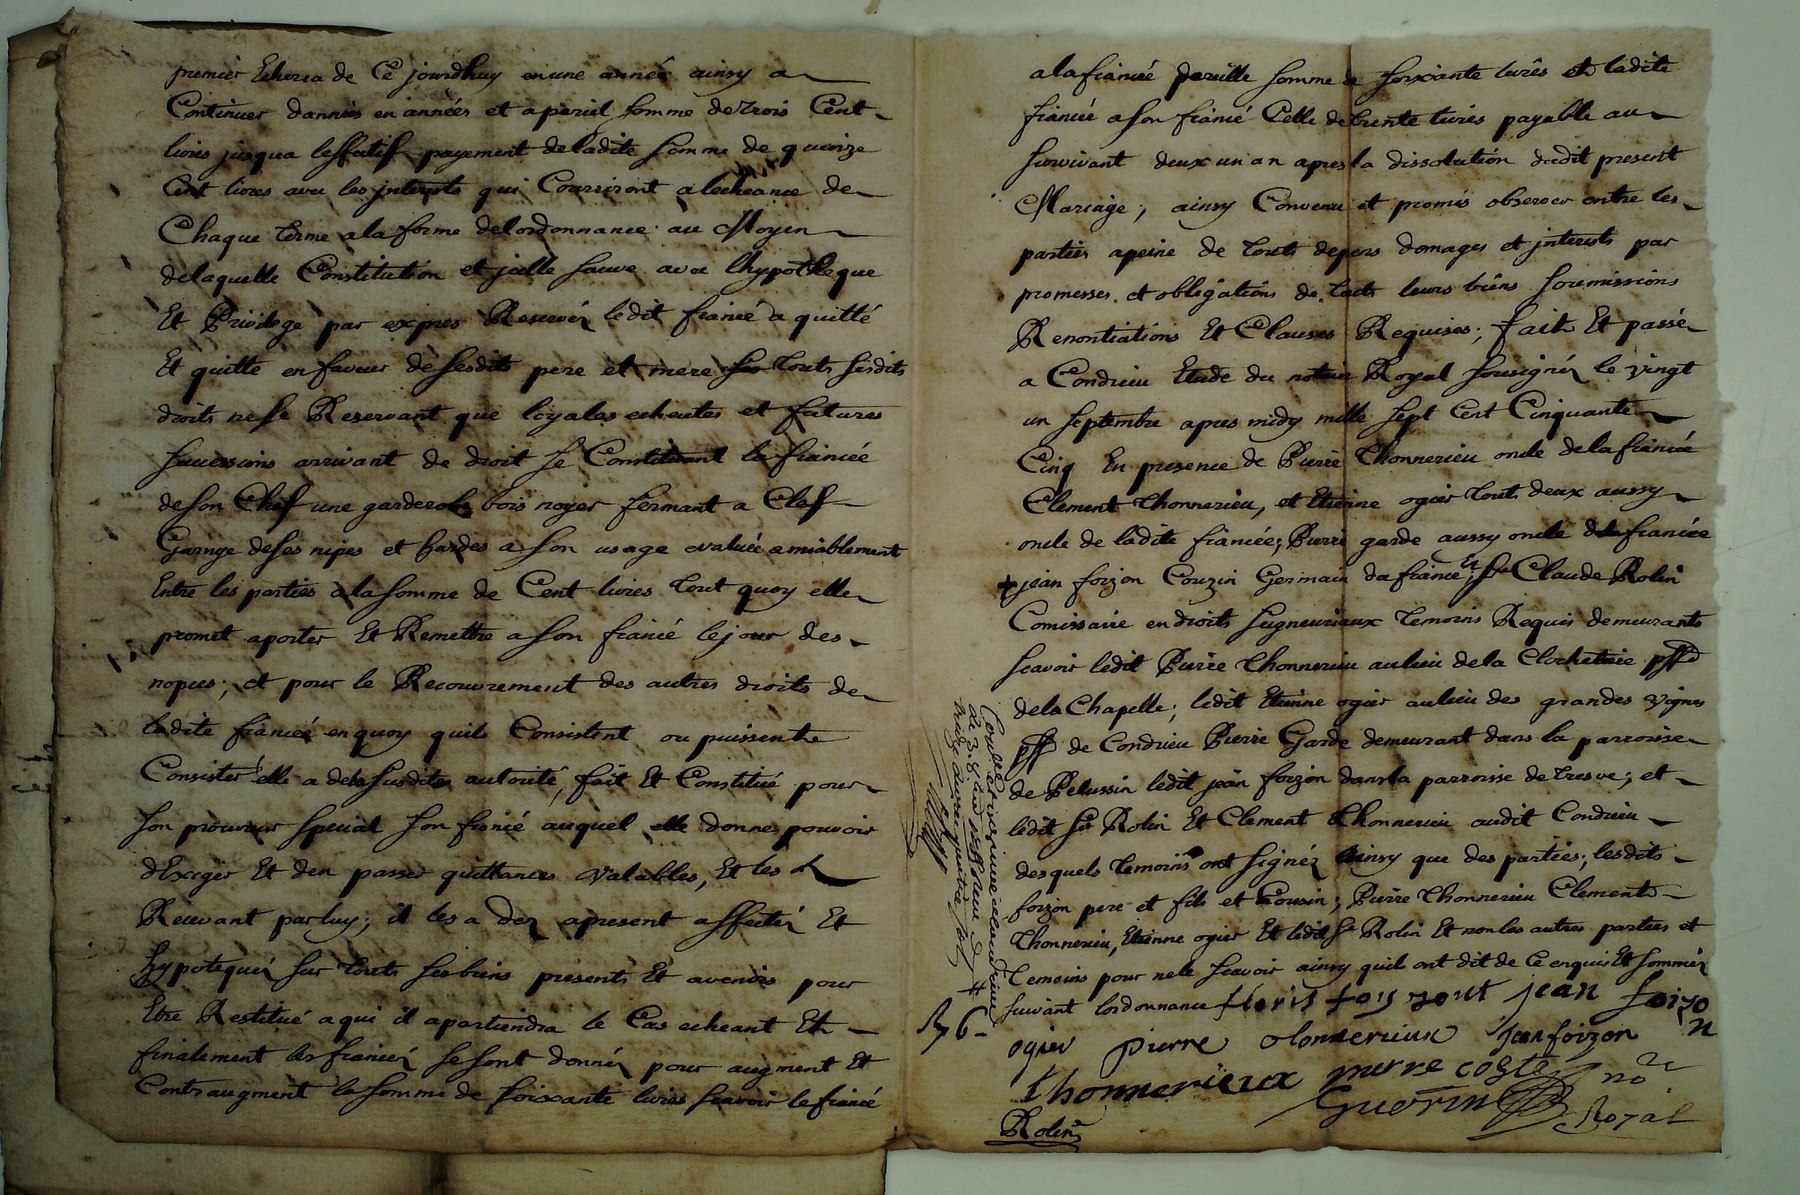 premier Echerra de Ce jourdhuy en une année ainsy a
Continuer d'années en années et a pareil somme de trois Cent
livres jusqua leffectif payement de ladite somme de quinze
Cent livres avec les jnterests qui Courriront a lecheance de
Chaque terme a la forme de lordonnance au Moyen
de laquelle Constitution et jcelle sauve avec lhypotheque
Et Privilege par expres Reservéz ledit fiancé a quitté
Et quitte en faveur de sesdits pere et mere touts sesdits
droits ne se Reservant que loyales echeutes et futures
successions arrivant de droit se Constituant la fiancée
de son Chef une garderobe bois noyer fermant a Clef
Garnye de ses nipes et hardes a son usage evaluée amiablement
Entre les parties a la somme de Cent livres tout quoy elle
promet aporter Et Remettre a son fiancé le jour des
nopces; et pour le Recouvrement des autres droits de
ladite fiancée en quoy quils Consistent ou puissent
Consister elle a de la susdite autorité, fait Et Constitué pour
son procureur special son fiancé auquel elle donne pouvoir
dExiger Et den passer quittances valables, Et les
Recevant par luy; il les a dez apresent affectéz Et
hypotequéz sur touts ses biens presents Et avenirs pour
Etre Restitué a qui il apartiendra le Cas echeant Et
finalement les fiancéz se sont donnéz pour augment Et
Contraugment la somme de soixante livres scavoir le fiancé
a la fiancée pareille somme de soixante livres et ladite
fiancée a son fiancé Celle de trente livres payable au
survivant deux un an apres la dissolution dudit present
Mariage; ainsy Convenu et promis observer entre les
parties a peine de touts depens domages et jnterests par
promesses et obligations de touts leurs biens soumissions
Renontiations Et Clauses Requises; fait Et passé
a Condrieu Etude du notaire Royal sousignéz le vingt
un septembre apres midy mille sept Cent Cinquante
Cinq En presence de Pierre Thonnerieu oncle de la fiancée
Clement thonnerieu, et Etienne ogier tout deux aussy
oncle de ladite fiancée; Pierre garde aussy oncle de la fiancée
+ jean foizon Couzin Germain du fiancé, Et Sr Claude Rolin
Comissaire en droits seigneuriaux temoins Requis demeurants
scavoir ledit Pierre thonnerieu au lieu de la Clochetiere psse
de la Chapelle; ledit Etienne ogier au lieu des grandes vignes
psse de Condrieu Pierre Garde demeurant dans la parroisse
de Pelussin ledit jean foizon dans la parroisse de tresve; et
ledit Sr Rolin Et Clement thonnerieu audit Condrieu
desquels temoins ont signéz ainsy que des parties; lesdits
foizon pere et fils et Cousin; Pierre thonnerieu Clement
thonnerieu, Etienne ogier Et ledit Sr Rolin Et non les autres parties et
temoins pour ne le scavoir ainsy quils ont dit de Ce enquis Et sommés
suivant lordonnance
jean foizon
ogier pierre jean foizon
thonnerieux pierre coste
Guerin nore
Royal
Rolin